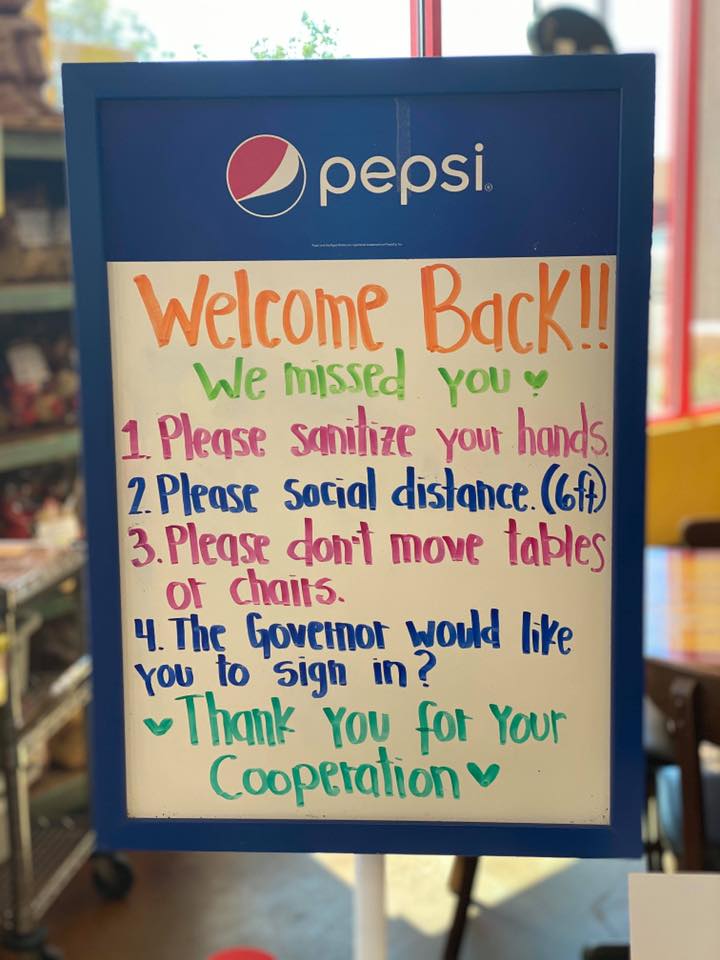 pepsi
Welcome Back!!
We missed you ♥
1. Please sanitize your hands.
2. Please social distance. (6ft)
3. Please don't move tables
or chairs.
4. The Governor would like
you to sign in?
♥ Thank you for your
Cooperation ♥